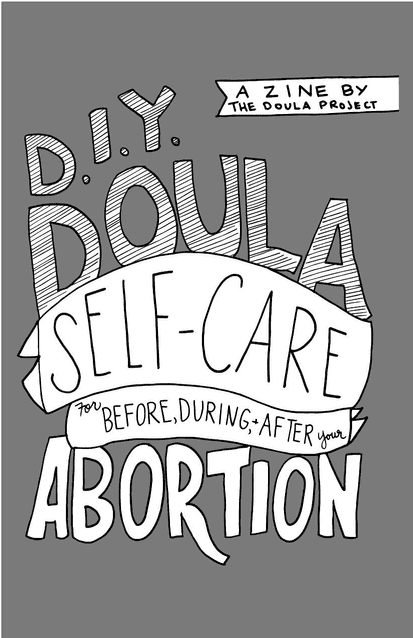 A ZINE BY
THE DOULA PROJECT
D.I.Y.
DOULA
SELF-CARE
For BEFORE, DURING, + AFTER your
ABORTION